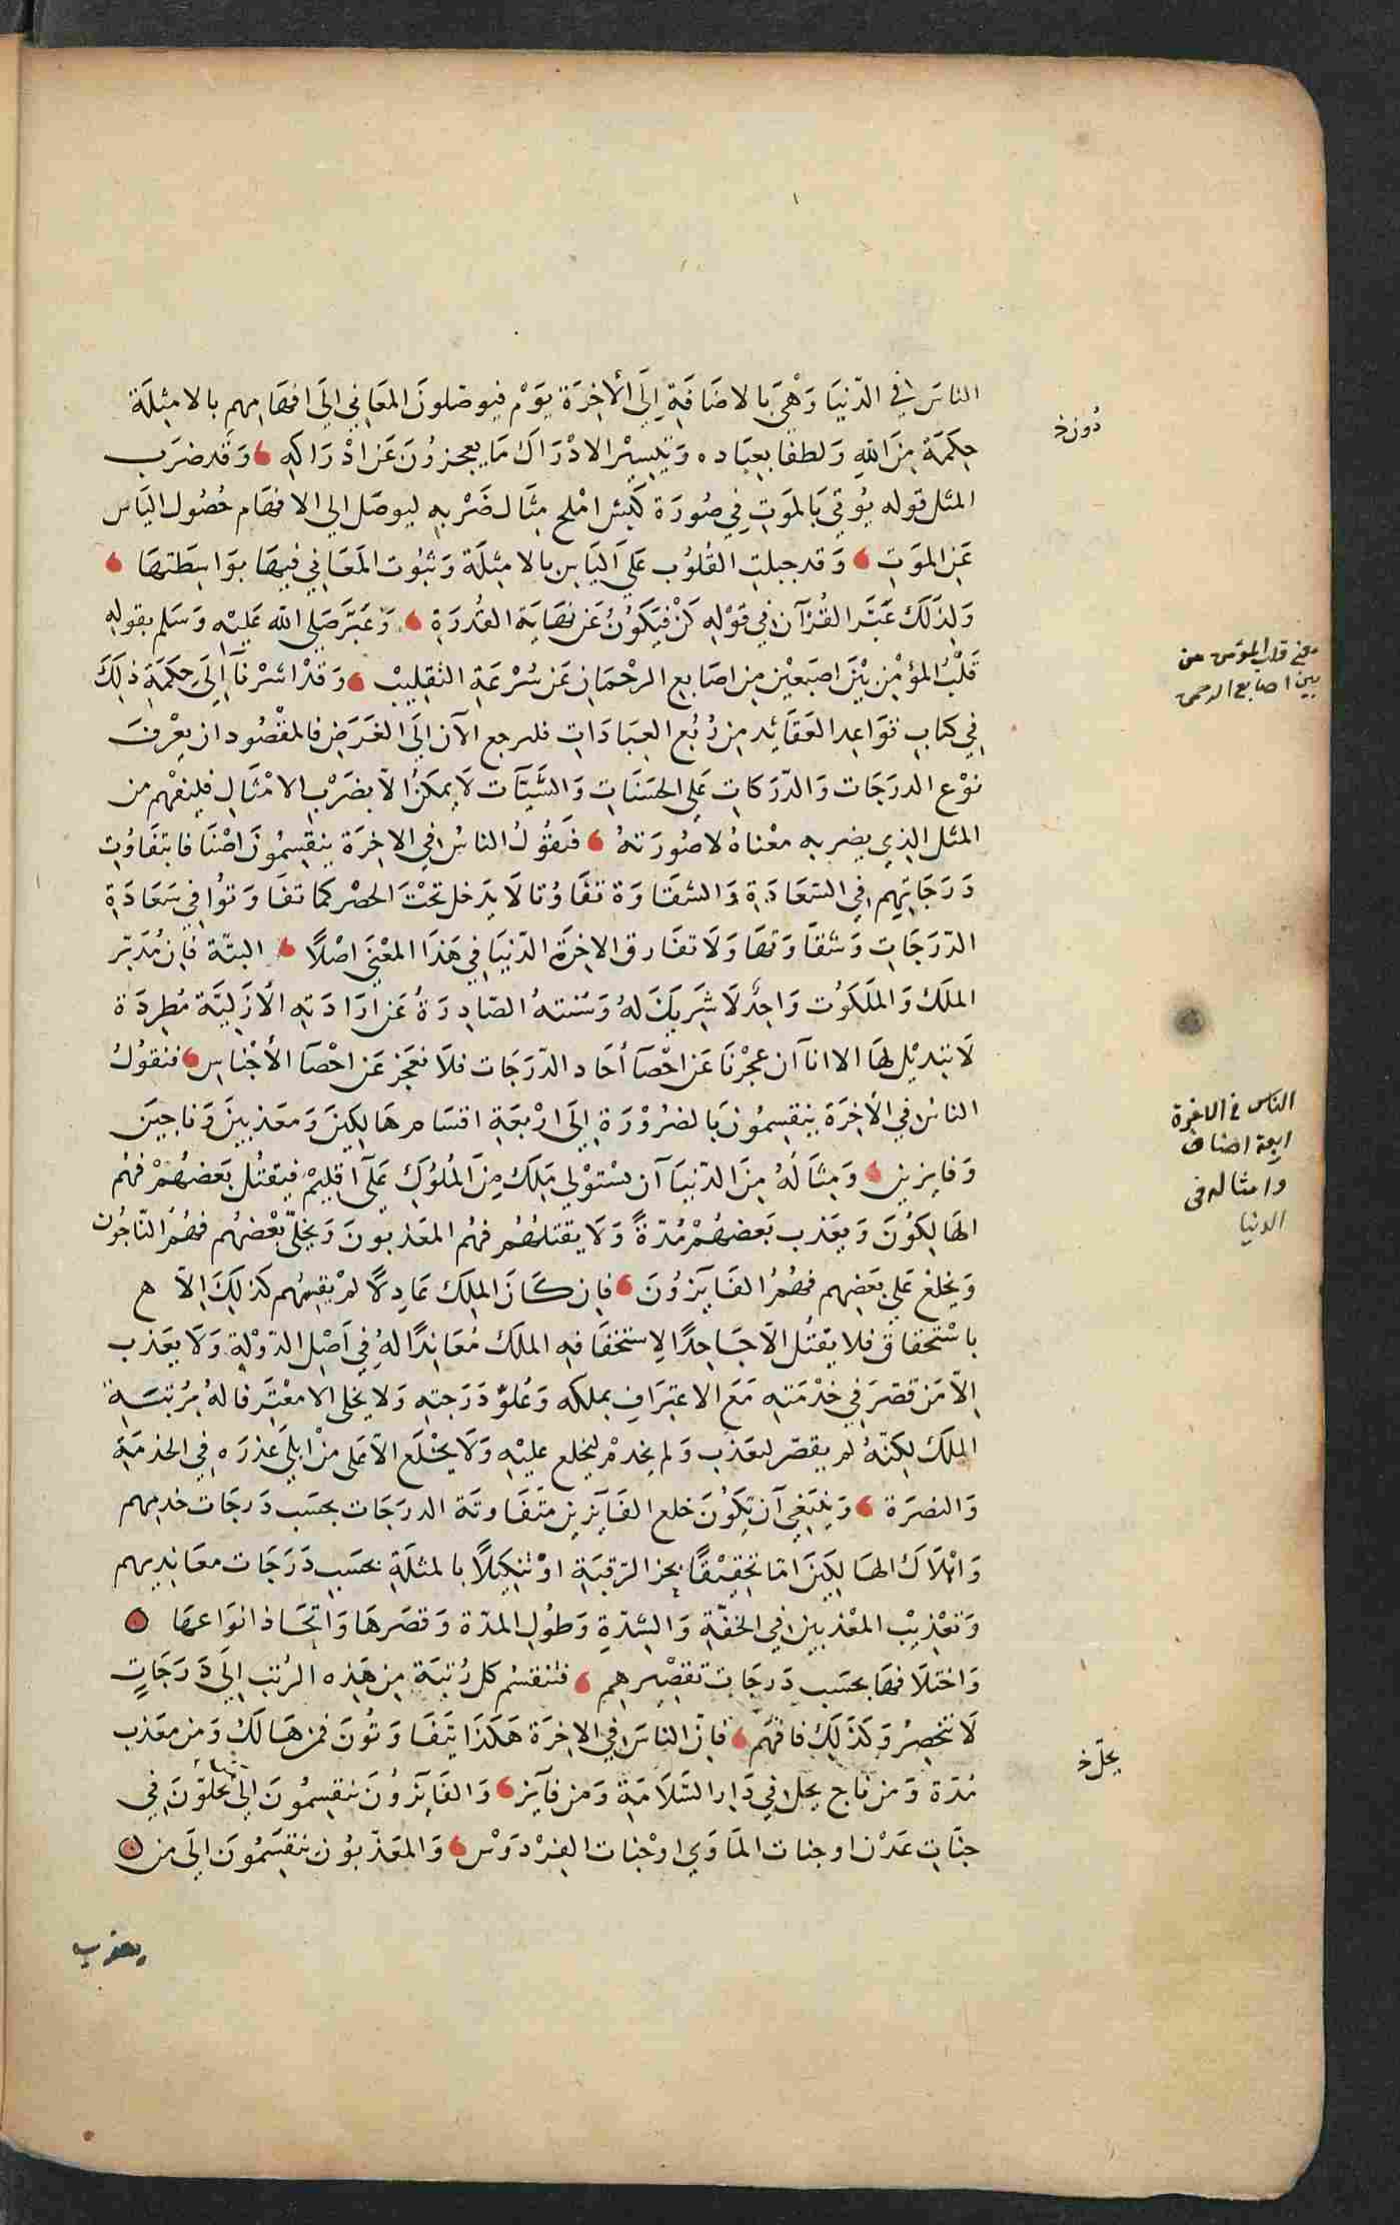 الناسَ في الدّنيَا وَهْيَ بالاضَافَةِ اِلَى الأخِرَة يَوَمْ فيوصّلونَ المَعَاني اِلَى افهَامِهِم بالامثِلَة
دُون خ
حِكمَةً مِنَ اللهِ وَلطفًا بعِبَاده وَتيسِيْر الادْرَاك مَا يعجزُونَ عَن ادْرَاكِهِ وَقد ضرَب
المثل قوله يُوتي بَالمَوَتِ فِي صُورَة كَبش امْلح مِثَال ضَرْبهِ ليوصَل الي الافهَام حُصُول اليَاس
عَنِ المَوَتِ وَقد جبلتِ القُلوُب عَلَى اليَاسِ بالامثِلَة وَثبُوت المَعَاني فيهَا بوَاسِطَتهَا
وَلِذلَكَ عَبَّر القُرآن في قَوْلهِ كَنْ فيَكُونُ عَن نهَايَة القُدرَةِ وَعَبَّرَ صَلى الله عَليْهِ وَسَلم بقولهِ
معنى قلب المؤمن من
بين اصابع الرحمن
قَلْبُ المؤمْنِ بَيْنَ اصبَعَيْن مِن اصَابع الرحْمَانِ عَن سُرْعَةِ التَقِليبْ وَقَدْ اشرْنَآ اِلَى حِكمَةِ ذلَكَ
فِي كتابِ قوَاعِد العَقَائِد مِن رُبْع العِبَادَات فلنرجع الآن اِلَى الغَرَضِ فالمقْصُود ان يعْرِفَ
نوْع الدرَجَات وَالدّرَكاتِ عَلى الحسَنَاتِ وَالسَّيّئَات لَا يمكنُ اِلاّ بضَرْب الامْثَالِ فليفهْم من
المثل الذِي يضربه معْناهُ لاصُورَتهُ فنَقُوُلُ الناسُ في الاخِرَة ينقسِمُونَ اصْنَافا بتفَاوُتِ
دَرَجَاتِهِم في السّعَادَةِ وَالشقَاوَة تفَاوُتا لَا يدَخل تحْتَ الحصْر كَما تفَاوَتوُا في سَعَادَةِ
الدّرَجَاتِ وَشقَاوَتهَا وَلَا تفَارق الاخِرَة الدّنيَا في هَذَا المعْنَى اصْلاً البتّة فَاِن مُدَبّر
الملَكَ وَالملَكوُت وَاحِدٌ لَا شَرِيَكَ لهُ وَسُنتهُ الصّادِرَةُ عَن ارَادَتهِ الأَزَليَّة مُطرِدَة
لَا تبَديْل لهَا الا اناّ ان عجزْنَا عَن احْصَآ أحَاد الدّرَجَات فلَا نعَجز عَن احْصَآ الأجْناسِ فنقوُلُ
الناس في الاخرة
اربعة اصناف
وامثاله في
الدنيا
الناسُ في الأخِرَة ينقسِمُونَ بَالضرُوْرَةِ اِلَى ارْبعَةِ اقسَام هَالِكينَ وَمَعَذبينَ وَناجيَن
وَفايزين وَمِثَالُهُ مِنَ الدّنيَا آن يسْتوْلي مَلِكَ مِنَ المُلوُكِ عَلَى اقليِمْ فيَقتُل بَعَضهُمْ فهُم
الهَالِكوُنَ وَيعَذب بَعضهُمْ مُدّةً وَلَا يقتلهُمْ فهُم المعَذبونَ وَيخلّي بعْضهُم فهُمُ النّاجُون
وَيخلعُ عَلى بَعضِهم فهُمُ الفَايَزوُنَ فاِن كَانَ المِلِك عَادِلاً لم يقسِمْهم كذلِكَ اِلاّ ه
باسْتحقاق فلا يقتُل الاّ جَاحِدًا لاِستخفَافهِ الملَك مُعَانِدًا لهُ في اصْل الدّوْلةِ وَلَا يعَذب
اِلاّ مَن قصّرَ في خدْمَتهِ مَعَ الاعتِرَافِ بملكه وَعُلوّ دَرَجتِهِ وَلا يخلى الا معْتِرَفا لهُ برُتبَة
الملَك لكنّهُ لم يقصّر ليعَذب وَلم يخدمْ ليخلع عليْهِ وَلَا يخْلَع الاّ عَلى منْ ابلى عذرَه في الخدمَةِ
وَالنصرَة وَينبَغي آن تكوُنَ خلع الفَايَزين متفَاوتَة الدرَجَات بحسَب دَرجَات خدمهم
وَاهْلَاكُ الهَالِكيَنَ امّا تحقِيْقًا بحز الرّقبَةِ اوْ تنكيَلاً بالمثلَةِ بحَسَبِ دَرَجَات معَاندِيهم
وَتعَذِيْب المعْذبين في الخفّةِ وَالشِدّةِ وَطوُل المدّة وَقصَرهَا وَاتِّحَاذ انوَاعهَا
وَاختلَافهَا بحسَب دَرجَات تقصْيرهِم فتنقسُم كل رُتبَة مِن هَذِه الرُتب اِلَى دَرَجَاتٍ
لَا تنحصِرُ وَكَذلِكَ فافهَم فاِنّ النَاسَ في الاخِرَة هَكَذَا يتفَاوَتُونَ فمن هَالكْ وَمن معَذب
يحلّ خ
مُدّة وَمن ناجِ يحل في دَار السَّلَامَةِ وَمن فآيَز وَالفَايَزوُنَ ينقسِمُونَ الى من يحلوّنَ في
جنّاتِ عَدْن او جنات المَاوَى اوْ جنات الفِرْدَوَسْ وَالمعَذّبوُن ينقسَمُونَ اِلَى من
يعذب